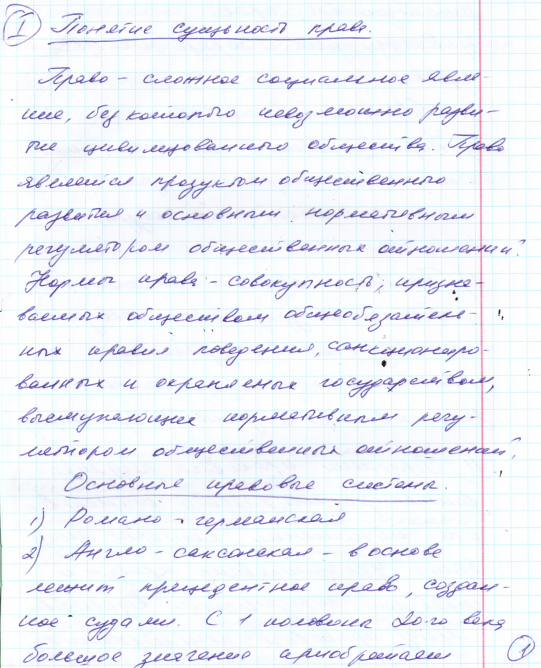 I Понятие сущность права.
Право - сложное социальное явле-
ние, без которого невозможно разви-
тие цивилизованного общества. Право
является продуктом общественного
развития и основным нормативным
регулятором общественных отношений.
Нормы права - совокупность, призна-
ваемых обществом общеобязатель-
ных правил поведения, санкциониро-
ванных и охраняемых государством,
выступающие нормативным регу-
лятором общественных отношений.
Основные правовые системы.
1) Романо - германская
2) Англо - саксонская - в основе
лежит прецедентное право, создан-
ное судами. С 1 половины 20-го века
большое значение приобретает
1